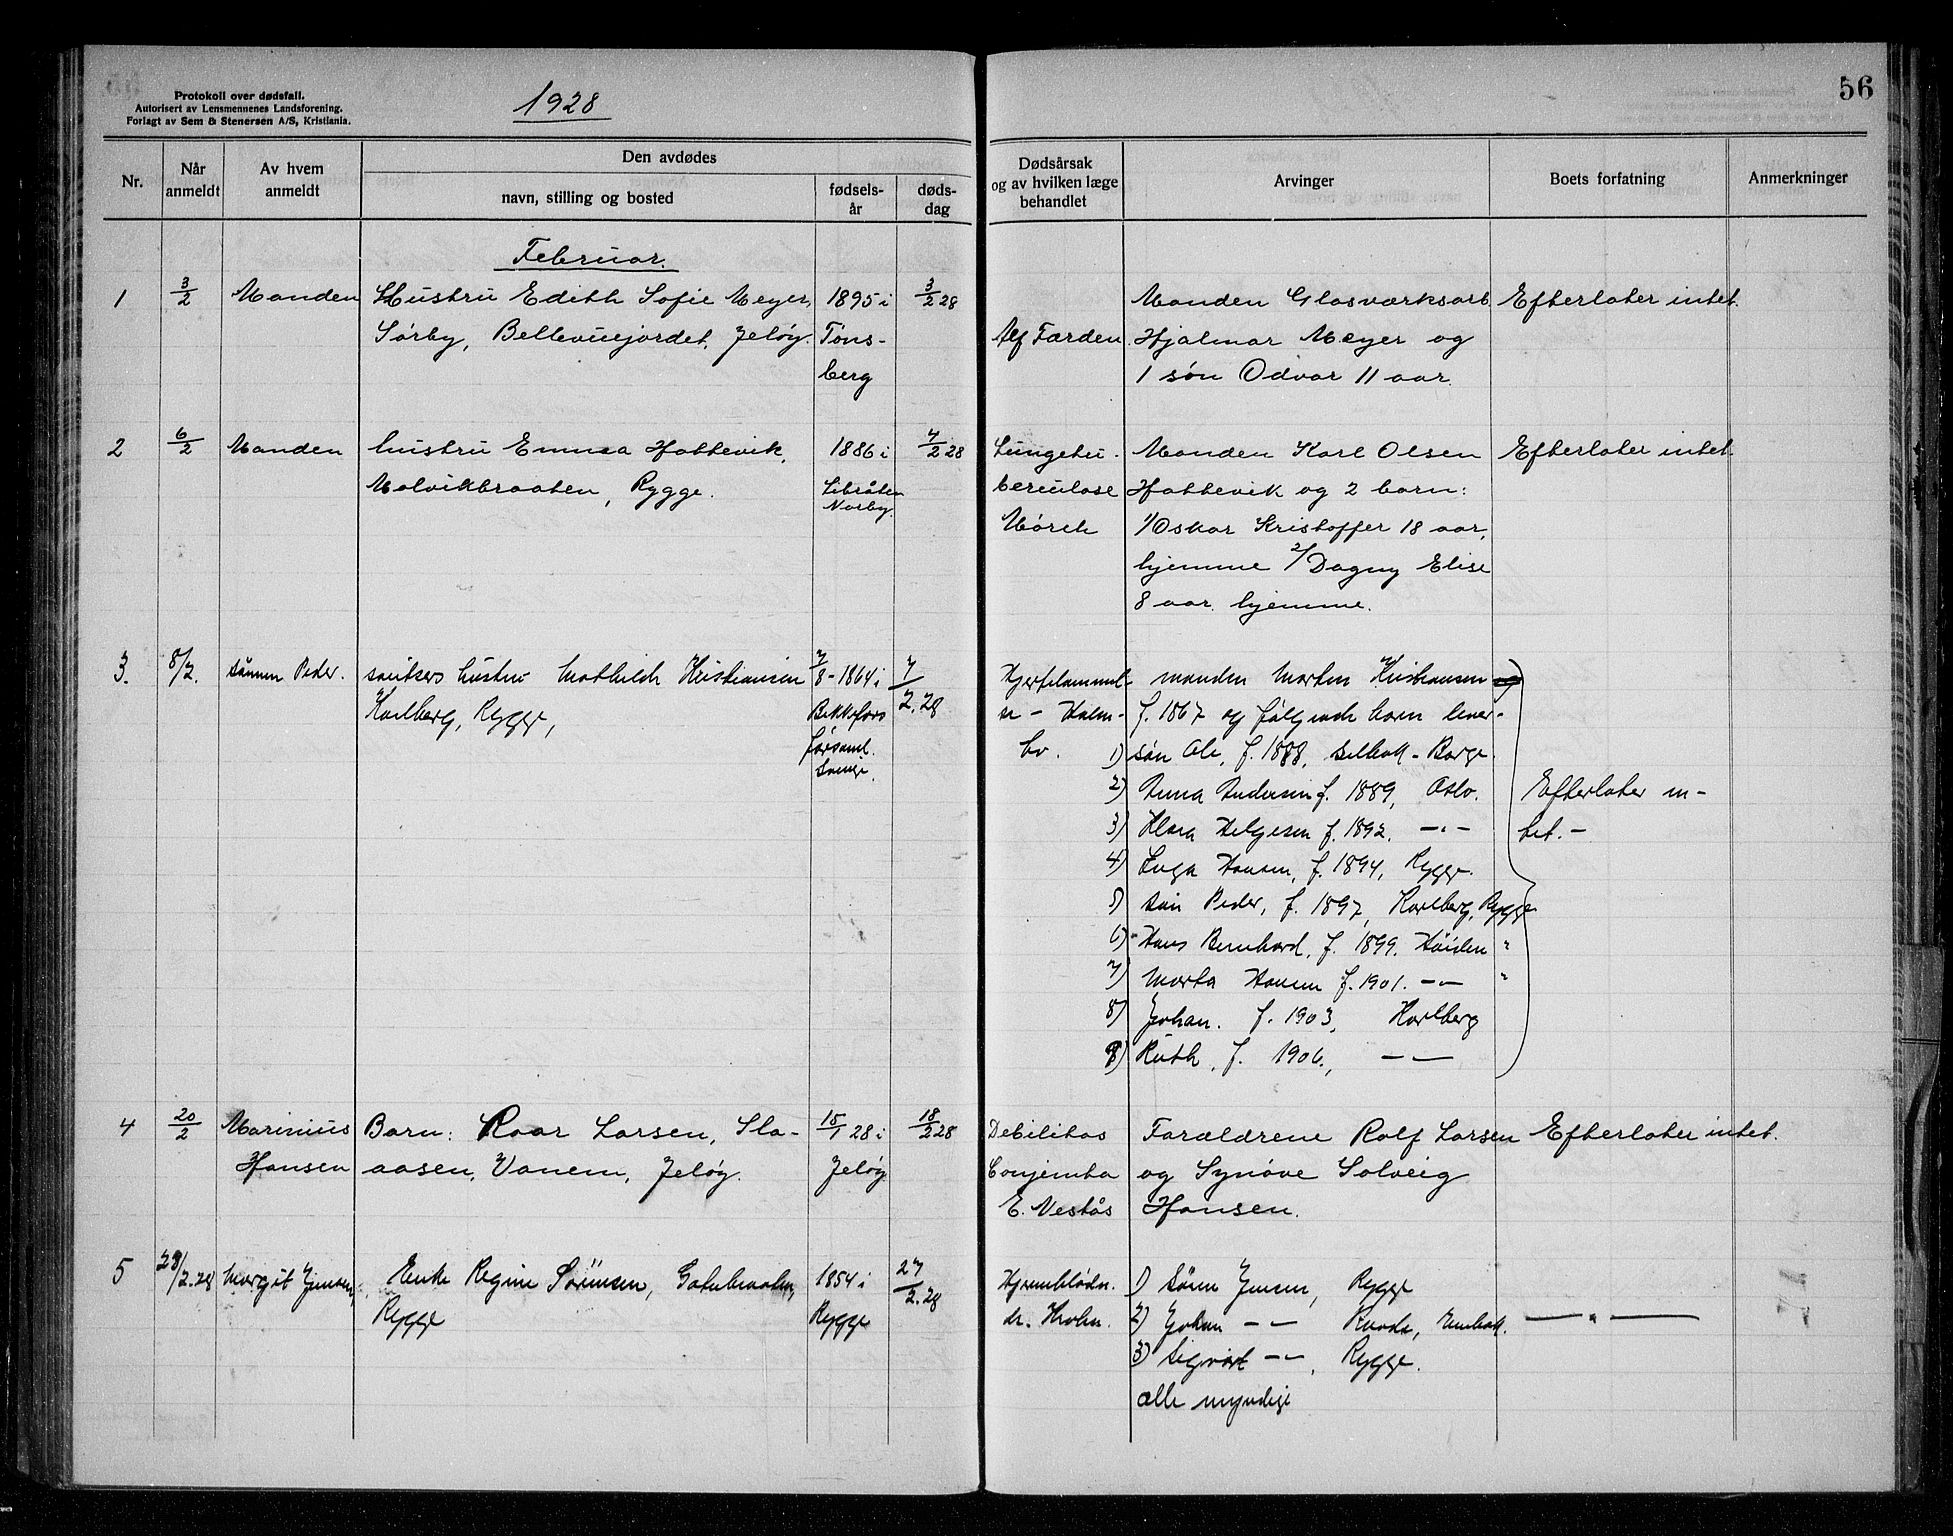 Protokoll over dødsfall.
Autorisert av Lensmennenes Landsforening.
Forlagt av Sem & Stenersen A/S, Kristiania.
1928
56
Nr.
Når anmeldt
Av hvem anmeldt
Den avdødes
navn, stilling og bosted
fødsels-år
døds-dag
Dødsårsak og av hvilken læge behandlet
Arvinger
Boets forfatning
Anmerkninger
Februar.
1 3/2 Manden Hustru Edith Sofie Meyer, 1895 i 3/2 28 Manden Glasværksarb. Efterlater intet.
Sørby, Bellevuejordet, Jeløy. Töns- Alf Færden Hjalmar Meyer og
berg 1 søn Odvar 11 aar.
2 6/2 Manden hustru Emma Hattevik, 1886 i 4/2 28 Lungetu- Manden Karl Olsen Efterlater intet.
Molvikbraaten, Rygge. berculose Hattevik og 2 barn:
Norby. Mörch 1/ Oskar Kristoffer 18 aar,
hjemme 2/ Dagny Elise
8 aar. hjemme.
3. 8/2. sönnen Peder. hustru Mathilde Kristiansen 7/8 - 1864 i 7/2.28 manden Morten Kristiansen
Karlberg, Rygge, f. 1867 og følgende barn lever-
forsaml. 1) søn Ole, f. 1888, Selbak - Borge.
2) Anna Andersen f. 1889, Oslo. Efterlater in-
3) Klara Helgesen f. 1892. -"- tet. -
4) Inga Hansen, f. 1894, Rygge.
5) søn Peder, f. 1897, Karlberg, Rygge
6) " Hans Bernhard, f. 1899. Höiden "
7) Marta Hansen f. 1901. -"- "
8) Johan. f. 1903, Karlberg
9) Ruth, f. 1906, -"-
4 20/2 Marinius Barn: Roar Larsen, Sla- 15/1 28 i 18/2 28 Debilitas Forældrene Rolf Larsen Efterlater intet.
Hansen aasen, Vanem, Jeløy. Jeløy Conjenita og Synöve Solveig
E. Vestås Hansen.
5 28/2.28 Margit Jensen, Enke Regine Sörensen, 1854 i 27/2.28 Hjerneblødn. 1) Sören Jensen, Rygge
Rygge Rygge dr. Krohn. 2) Johan -"- Raade, -"-
3) Sigvart -"-, Rygge.
alle myndige